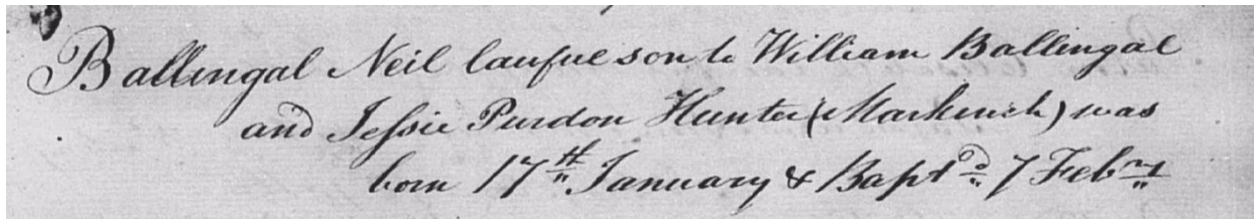 Ballingal Neil lauful son to William Ballingal
and Jessie Purdon Hunter (Markinch) was
born 17th January & Baptd 7 Febry